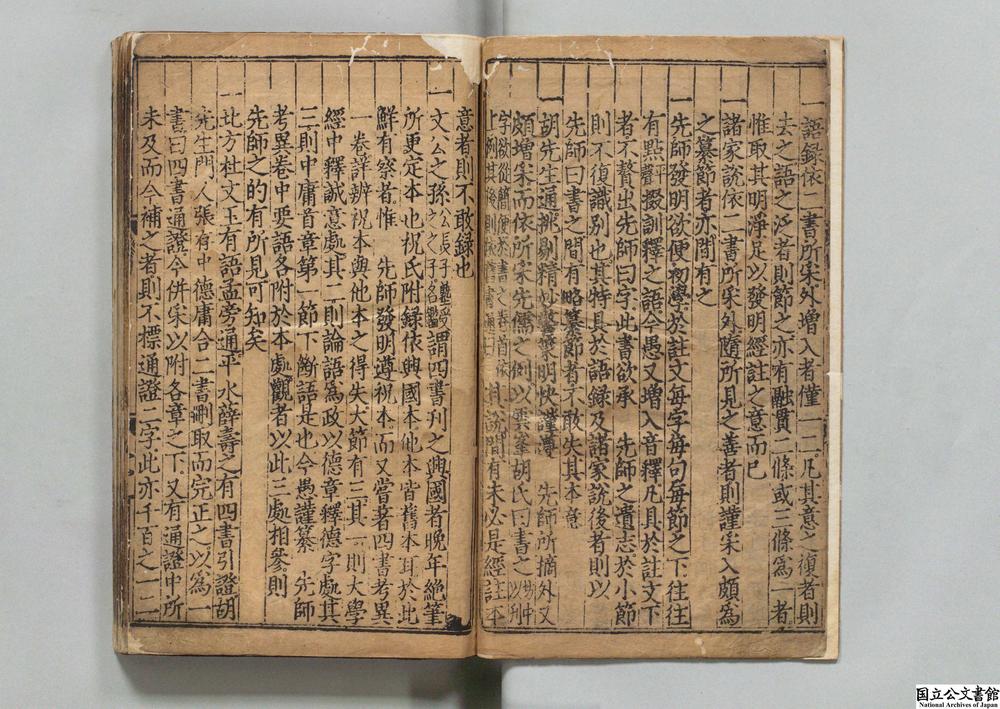 一語錄依二書所采外增入者僅一二凡其意之復者則
去之語之泛者則節之亦有融貫二條或三條為一者
惟取其明淨足以發明經註之意而已
一諸家說依二書所采外隨所見之善者則謹采入頗為
之纂節者亦間有之
一先師發明欲便初學於註文每字每句每節之下往往
有點掇訓釋之語今愚又增入音釋凡具於註文下
者不贅出先師曰字此書欲承 先師之遺志於小節
則不復識別也其特具於語錄及諸家說後者則以
先師曰書之間有略纂節者不敢失其本意
一胡先生通挑剔精 明快謹 先師所摘外又
頗增采而依所采先儒之例以雲峯胡氏曰書之
字欲從簡便
其說間有未必是經註本
意者則不敢錄也
一文公之孫 謂四書刊之興國者晚年絕筆
所更定本也祝氏附錄依興國本他本皆舊本耳於此
鮮有察者惟 先師發明遵祝本而又嘗著四書考異
一卷詳辨祝本與他本之得失大節有三其一則大學
經中釋誠意處其二則論語為政以德章釋德字處其
三則中庸首章第一節下斷語是也今愚謹纂 先師
考異卷中要語各附於本處觀者以此三處相參則
先師之的有所見可知矣
一北方杜文玉有語孟旁通平水薛壽之有四書引證胡
先生門人張存中德庸合二書刪取而完正之以為一
書曰四書通證今併采以附各章之下又有通證中所
未及而今補之者則不標通證二字此亦千百之一二
国立公文書館
National Archives of Japan